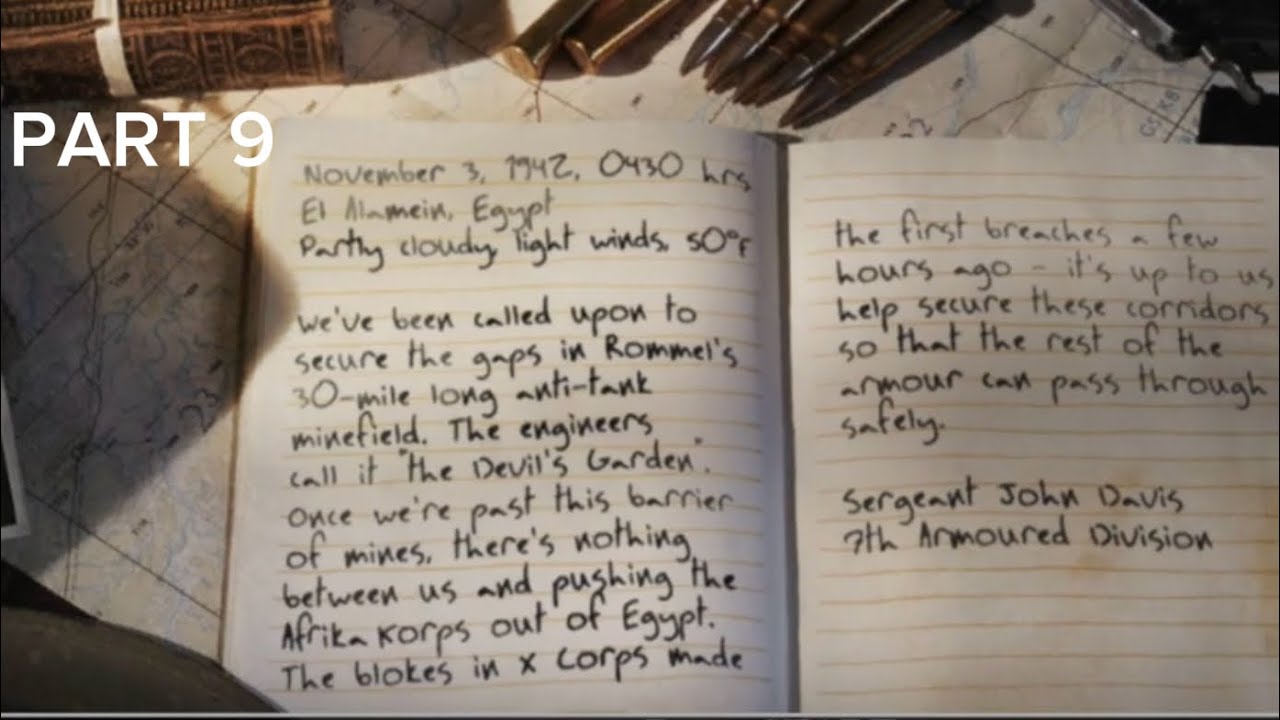 PART 9
November 3, 1942, 0430 hrs
El Alamein, Egypt
Partly cloudy, light winds, 50°F
We've been called upon to
secure the gaps in Rommel's
30-mile long anti-tank
minefield. The engineers
call it "the Devil's Garden".
Once we're past this barrier
of mines, there's nothing
between us and pushing the
Afrika Korps out of Egypt.
The blokes in X Corps made
the first breaches a few
hours ago - it's up to us
help secure these corridors
so that the rest of the
armour can pass through
safely.
Sergeant John Davis
7th Armoured Division